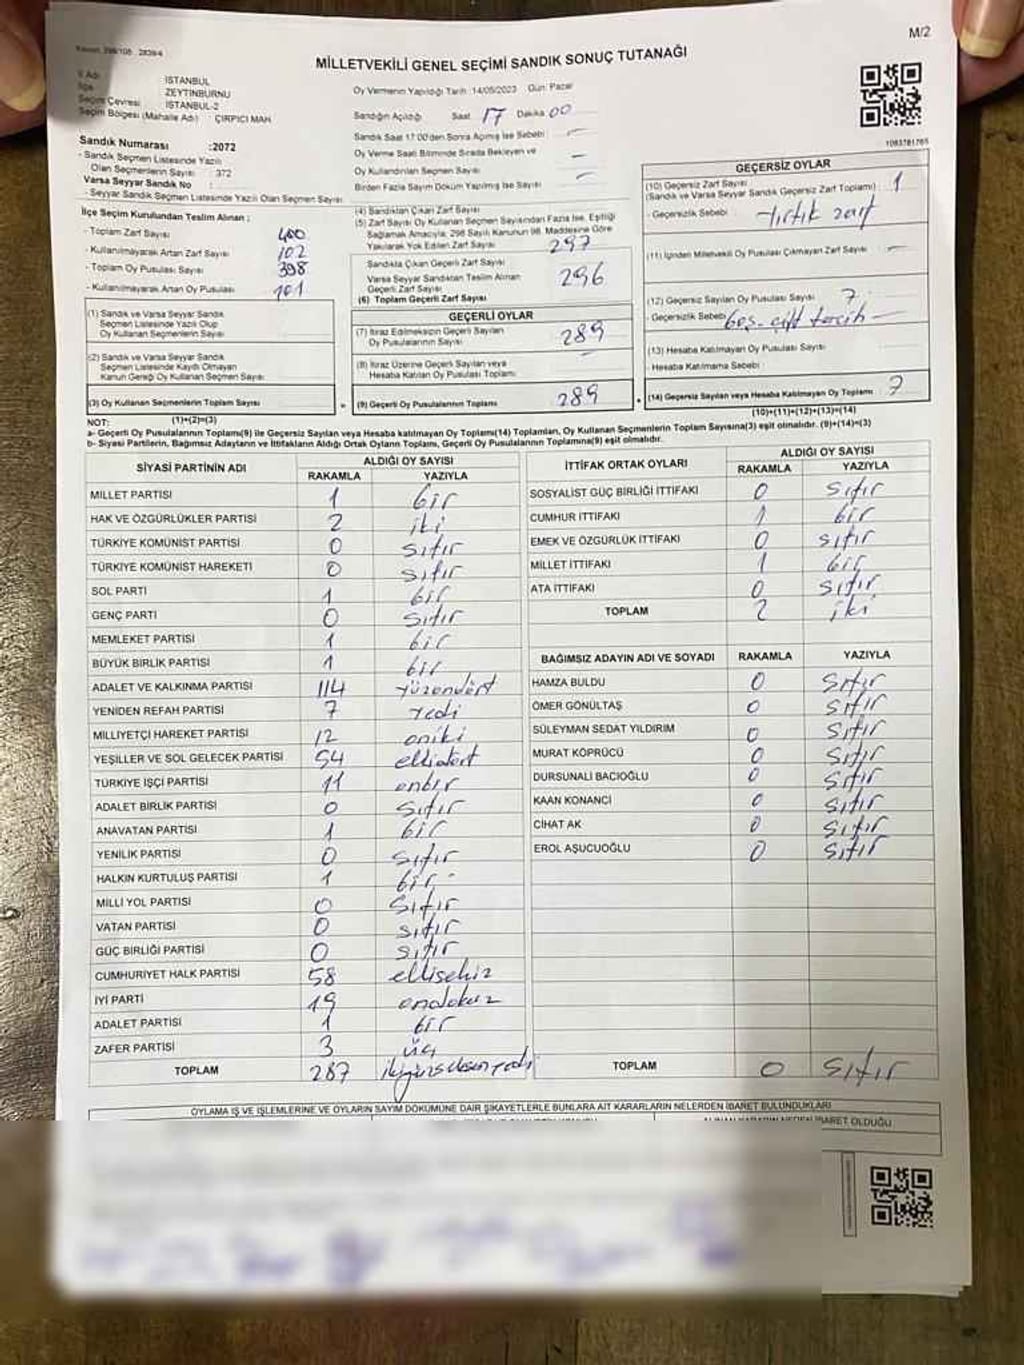 M/2
MİLLETVEKİLİ GENEL SEÇİMİ SANDIK SONUÇ TUTANAĞI
İl Adı : İSTANBUL
İlçe : ZEYTİNBURNU
Seçim Çevresi : İSTANBUL-2
Seçim Bölgesi (Mahalle Adı) : ÇIRPICI MAH
Oy Vermenin Yapıldığı Tarih :14/05/2023 Gün: Pazar
Sandığın Açıldığı Saat 17 Dakika 00
Sandık Saat 17:00'den Sonra Açılmış İse Sebebi: -
Oy Verme Saati Bitiminde Sırada Bekleyen ve
Oy Kullandırılan Seçmen Sayısı : -
Birden Fazla Sayım Döküm Yapılmış İse Sayısı -
1083781765
Sandık Numarası :2072
- Sandık Seçmen Listesinde Yazılı
Olan Seçmenlerin Sayısı : 372
Varsa Seyyar Sandık No :
- Seyyar Sandık Seçmen Listesinde Yazılı Olan Seçmen Sayısı
İlçe Seçim Kurulundan Teslim Alınan ;
- Toplam Zarf Sayısı 400
- Kullanılmayarak Artan Zarf Sayısı 102
- Toplam Oy Pusulası Sayısı 398
- Kullanılmayarak Artan Oy Pusulası 101
(1) Sandık ve Varsa Seyyar Sandık
Seçmen Listesinde Yazılı Olup
Oy Kullanan Seçmen Sayısı
(2) Sandık ve Varsa Seyyar Sandık
Seçmen Listesinde Kaydı Olmayan
Kanun Gereği Oy Kullanan Seçmen Sayısı
(3) Oy Kullanan Seçmenlerin Toplam Sayısı
(1)+(2)=(3)
(4) Sandıktan Çıkan Zarf Sayısı
(5) Zarf Sayısı Oy Kullanan Seçmen Sayısından Fazla İse, Eşitliği
Sağlamak Amacıyla; 298 Sayılı Kanunun 98. Maddesine Göre
Yakılarak Yok Edilen Zarf Sayısı 297
Sandıkta Çıkan Geçerli Zarf Sayısı
Varsa Seyyar Sandıktan Teslim Alınan
Geçerli Zarf Sayısı 296
(6) Toplam Geçerli Zarf Sayısı
GEÇERLİ OYLAR
(7) İtiraz Edilmeksizin Geçerli Sayılan
Oy Pusulalarının Sayısı 289
(8) İtiraz Üzerine Geçerli Sayılan veya
Hesaba Katılan Oy Pusulası Toplamı -
(9) Geçerli Oy Pusulalarının Toplamı 289
GEÇERSİZ OYLAR
(10) Geçersiz Zarf Sayısı
(Sandık ve Varsa Seyyar Sandık Geçersiz Zarf Toplamı) : 1
- Geçersizlik Sebebi : yırtık zarf
(11) İçinden Milletvekili Oy Pusulası Çıkmayan Zarf Sayısı -
(12) Geçersiz Sayılan Oy Pusulası Sayısı 7
- Geçersizlik Sebebi boş-çift tercih -
(13) Hesaba Katılmayan Oy Pusulası Sayısı
- Hesaba Katılmama Sebebi
(14) Geçersiz Sayılan veya Hesaba Katılmayan Oy Toplamı : 7
(10)+(11)+(12)+(13)=(14)
NOT:
a- Geçerli Oy Pusulalarının Toplamı(9) ile Geçersiz Sayılan veya Hesaba katılmayan Oy Toplamı(14) Toplamları, Oy Kullanan Seçmenlerin Toplam Sayısına(3) eşit olmalıdır. (9)+(14)=(3)
b- Siyasi Partilerin, Bağımsız Adayların ve İttifakların Aldığı Ortak Oyların Toplamı, Geçerli Oy Pusulalarının Toplamına(9) eşit olmalıdır.
SİYASİ PARTİNİN ADI ALDIĞI OY SAYISI
RAKAMLA YAZIYLA
MİLLET PARTİSİ 1 bir
HAK VE ÖZGÜRLÜKLER PARTİSİ 2 iki
TÜRKİYE KOMÜNİST PARTİSİ 0 sıfır
TÜRKİYE KOMÜNİST HAREKETİ 0 sıfır
SOL PARTİ 1 bir
GENÇ PARTİ 0 sıfır
MEMLEKET PARTİSİ 1 bir
BÜYÜK BİRLİK PARTİSİ 1 bir
ADALET VE KALKINMA PARTİSİ 114 yüzondört
YENİDEN REFAH PARTİSİ 7 yedi
MİLLİYETÇİ HAREKET PARTİSİ 12 oniki
YEŞİLLER VE SOL GELECEK PARTİSİ 54 ellidört
TÜRKİYE İŞÇİ PARTİSİ 11 onbir
ADALET BİRLİK PARTİSİ 0 sıfır
ANAVATAN PARTİSİ 1 bir
YENİLİK PARTİSİ 0 sıfır
HALKIN KURTULUŞ PARTİSİ 1 bir
MİLLİ YOL PARTİSİ 0 sıfır
VATAN PARTİSİ 0 sıfır
GÜÇ BİRLİĞİ PARTİSİ 0 sıfır
CUMHURİYET HALK PARTİSİ 58 ellisekiz
İYİ PARTİ 19 ondokuz
ADALET PARTİSİ 1 bir
ZAFER PARTİSİ 3 üç
TOPLAM 287 ikiyüzseksenyedi
İTTİFAK ORTAK OYLARI ALDIĞI OY SAYISI
RAKAMLA YAZIYLA
SOSYALİST GÜÇ BİRLİĞİ İTTİFAKI 0 sıfır
CUMHUR İTTİFAKI 1 bir
EMEK VE ÖZGÜRLÜK İTTİFAKI 0 sıfır
MİLLET İTTİFAKI 1 bir
ATA İTTİFAKI 0 sıfır
TOPLAM 2 iki
BAĞIMSIZ ADAYIN ADI VE SOYADI RAKAMLA YAZIYLA
HAMZA BULDU 0 sıfır
ÖMER GÖNÜLTAŞ 0 sıfır
SÜLEYMAN SEDAT YILDIRIM 0 sıfır
MURAT KÖPRÜCÜ 0 sıfır
DURSUNALİ BACIOĞLU 0 sıfır
KAAN KONANCI 0 sıfır
CİHAT AK 0 sıfır
EROL AŞUCUOĞLU 0 sıfır
TOPLAM 0 sıfır
OYLAMA İŞ VE İŞLEMLERİNE VE OYLARIN SAYIM DÖKÜMÜNE DAİR ŞİKAYETLERLE BUNLARA AİT KARARLARIN NELERDEN İBARET BULUNDUKLARI
ALINAN KARARIN NEDEN İBARET OLDUĞU